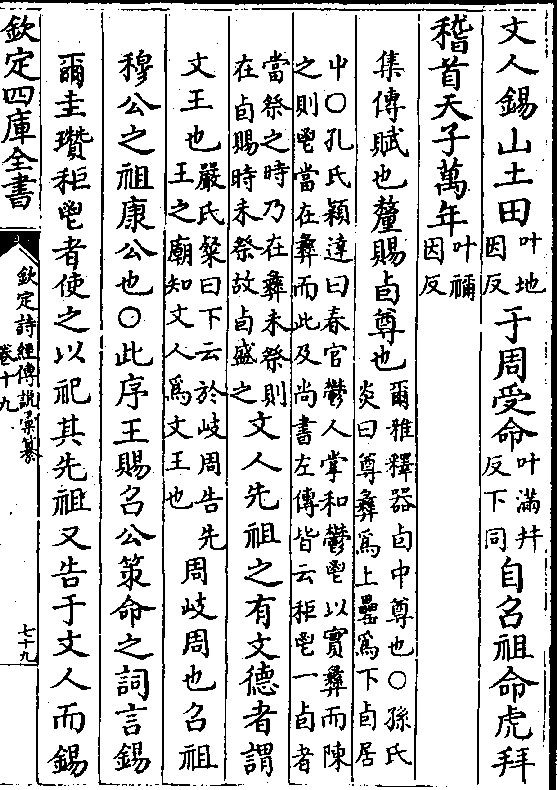 文人錫山土田叶地因反于周受命叶滿井反下同自召祖命虎拜
稽首天子萬年叶禰因反
集傳賦也釐賜卣尊也爾雅釋器卣中尊也○孫氏炎曰尊彝爲上罍爲下卣居
中○孔氏穎達曰春官鬱人掌和鬱鬯以實彝而陳之則鬯當在彝而此及尚書左傳皆云秬鬯一卣者
當祭之時乃在彝未祭則在卣賜時未祭故卣盛之文人先祖之有文德者謂
文王也嚴氏粲曰下云於岐周告先王之廟知文人爲文王也周岐周也召祖
穆公之祖康公也○此序王賜召公策命之詞言錫
爾圭瓚秬鬯者使之以祀其先祖又告于文人而錫
欽定四庫全書
欽定詩經傳說彙纂
卷十九
七十九